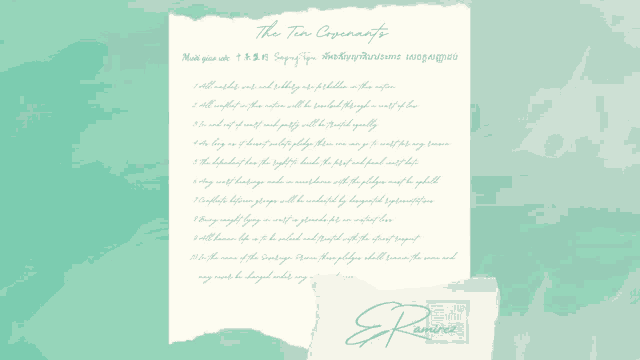 The Ten Covenants
Mười giao ước 十系盟約
1 All murder war and robbery are forbidden in this nation
2 All conflict in this nation will be resolved through a court of law
3 In and out of court each party will be treated equally
4 As long as it doesn't violate pledge three one can go to court for any reason
5 The defendant has the right to decide the first and final court date
6 Any court hearings made in accordance with the pledges must be upheld
7 Conflicts between groups will be conducted by designated representatives
8 Being caught lying in court is grounds for an instant loss
9 All human life is to be valued and treated with the utmost respect
10 In the name of the Sovereign these pledges shall remain the same and
may never be changed under any
ERamirez